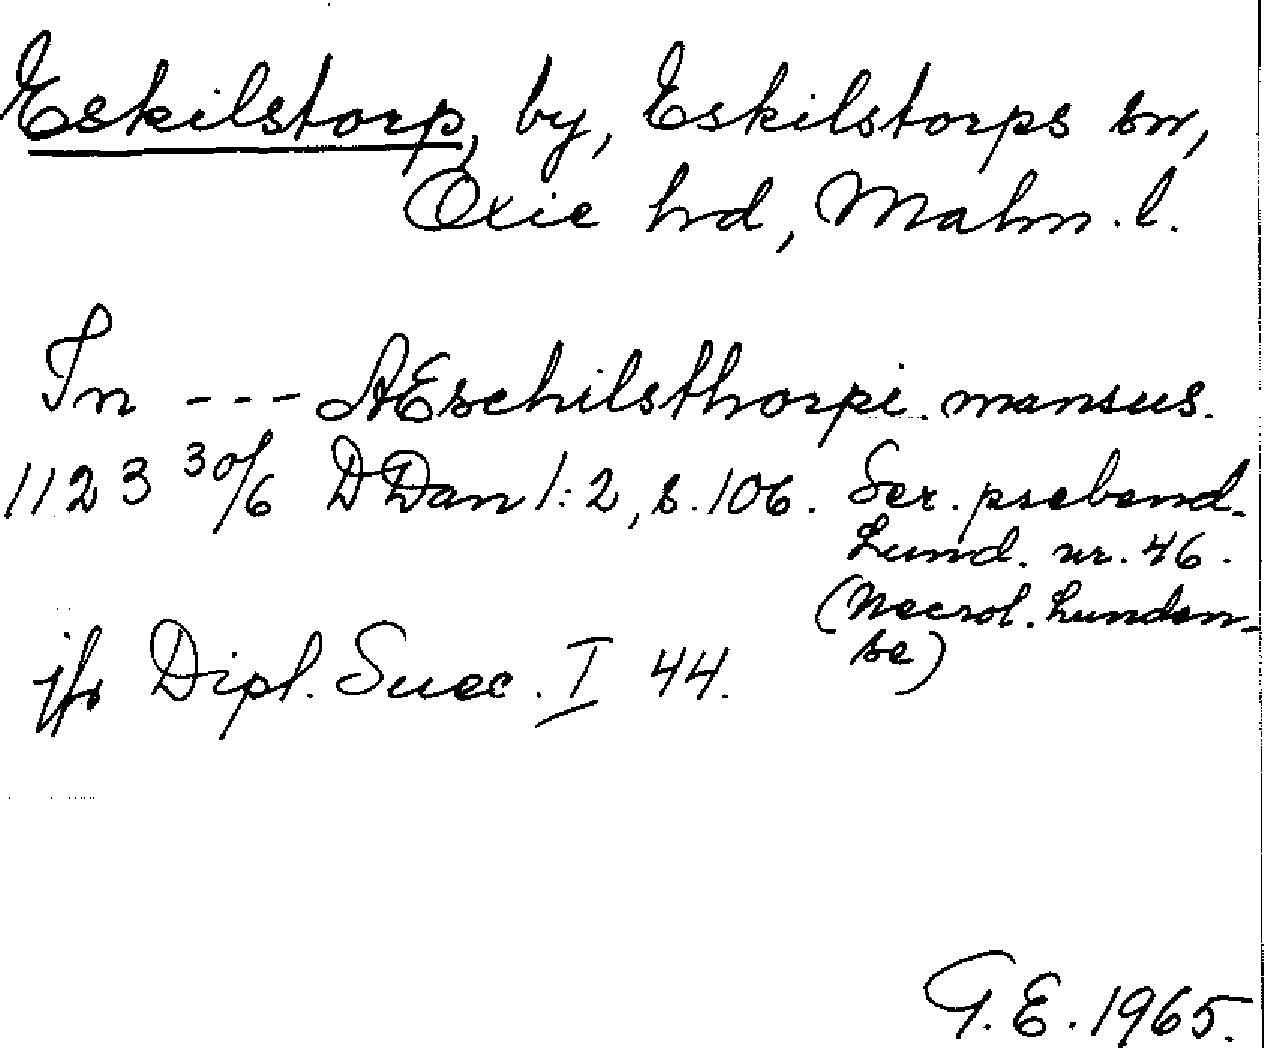 Eskilstorp, by, Eskilstorps sn,
Oxie hrd, Malm. l.
In --- AEschilsthorpi mansus.
1123 30/6 DDan 1:2, s. 106. Ser. prebend.
Lund. nr. 46.
(Necrol. Lunden-
se)
jfr Dipl. Suec. I 44.
G.E. 1965.